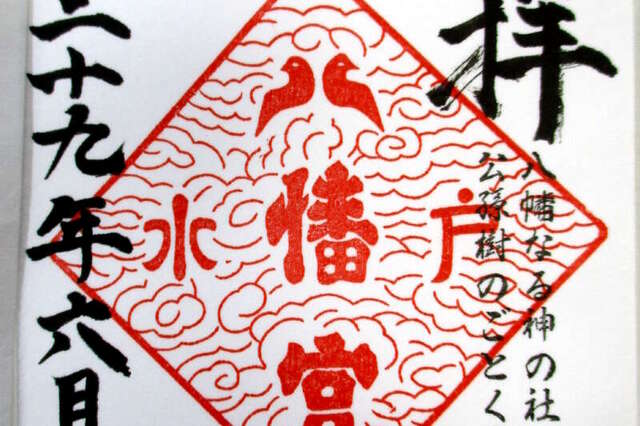 拝
八幡なる神の社
公孫樹のごとく
水戸
八幡宮
二十九年六月